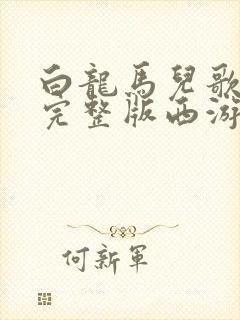 白龍馬兒歌
完整版西游
何新軍